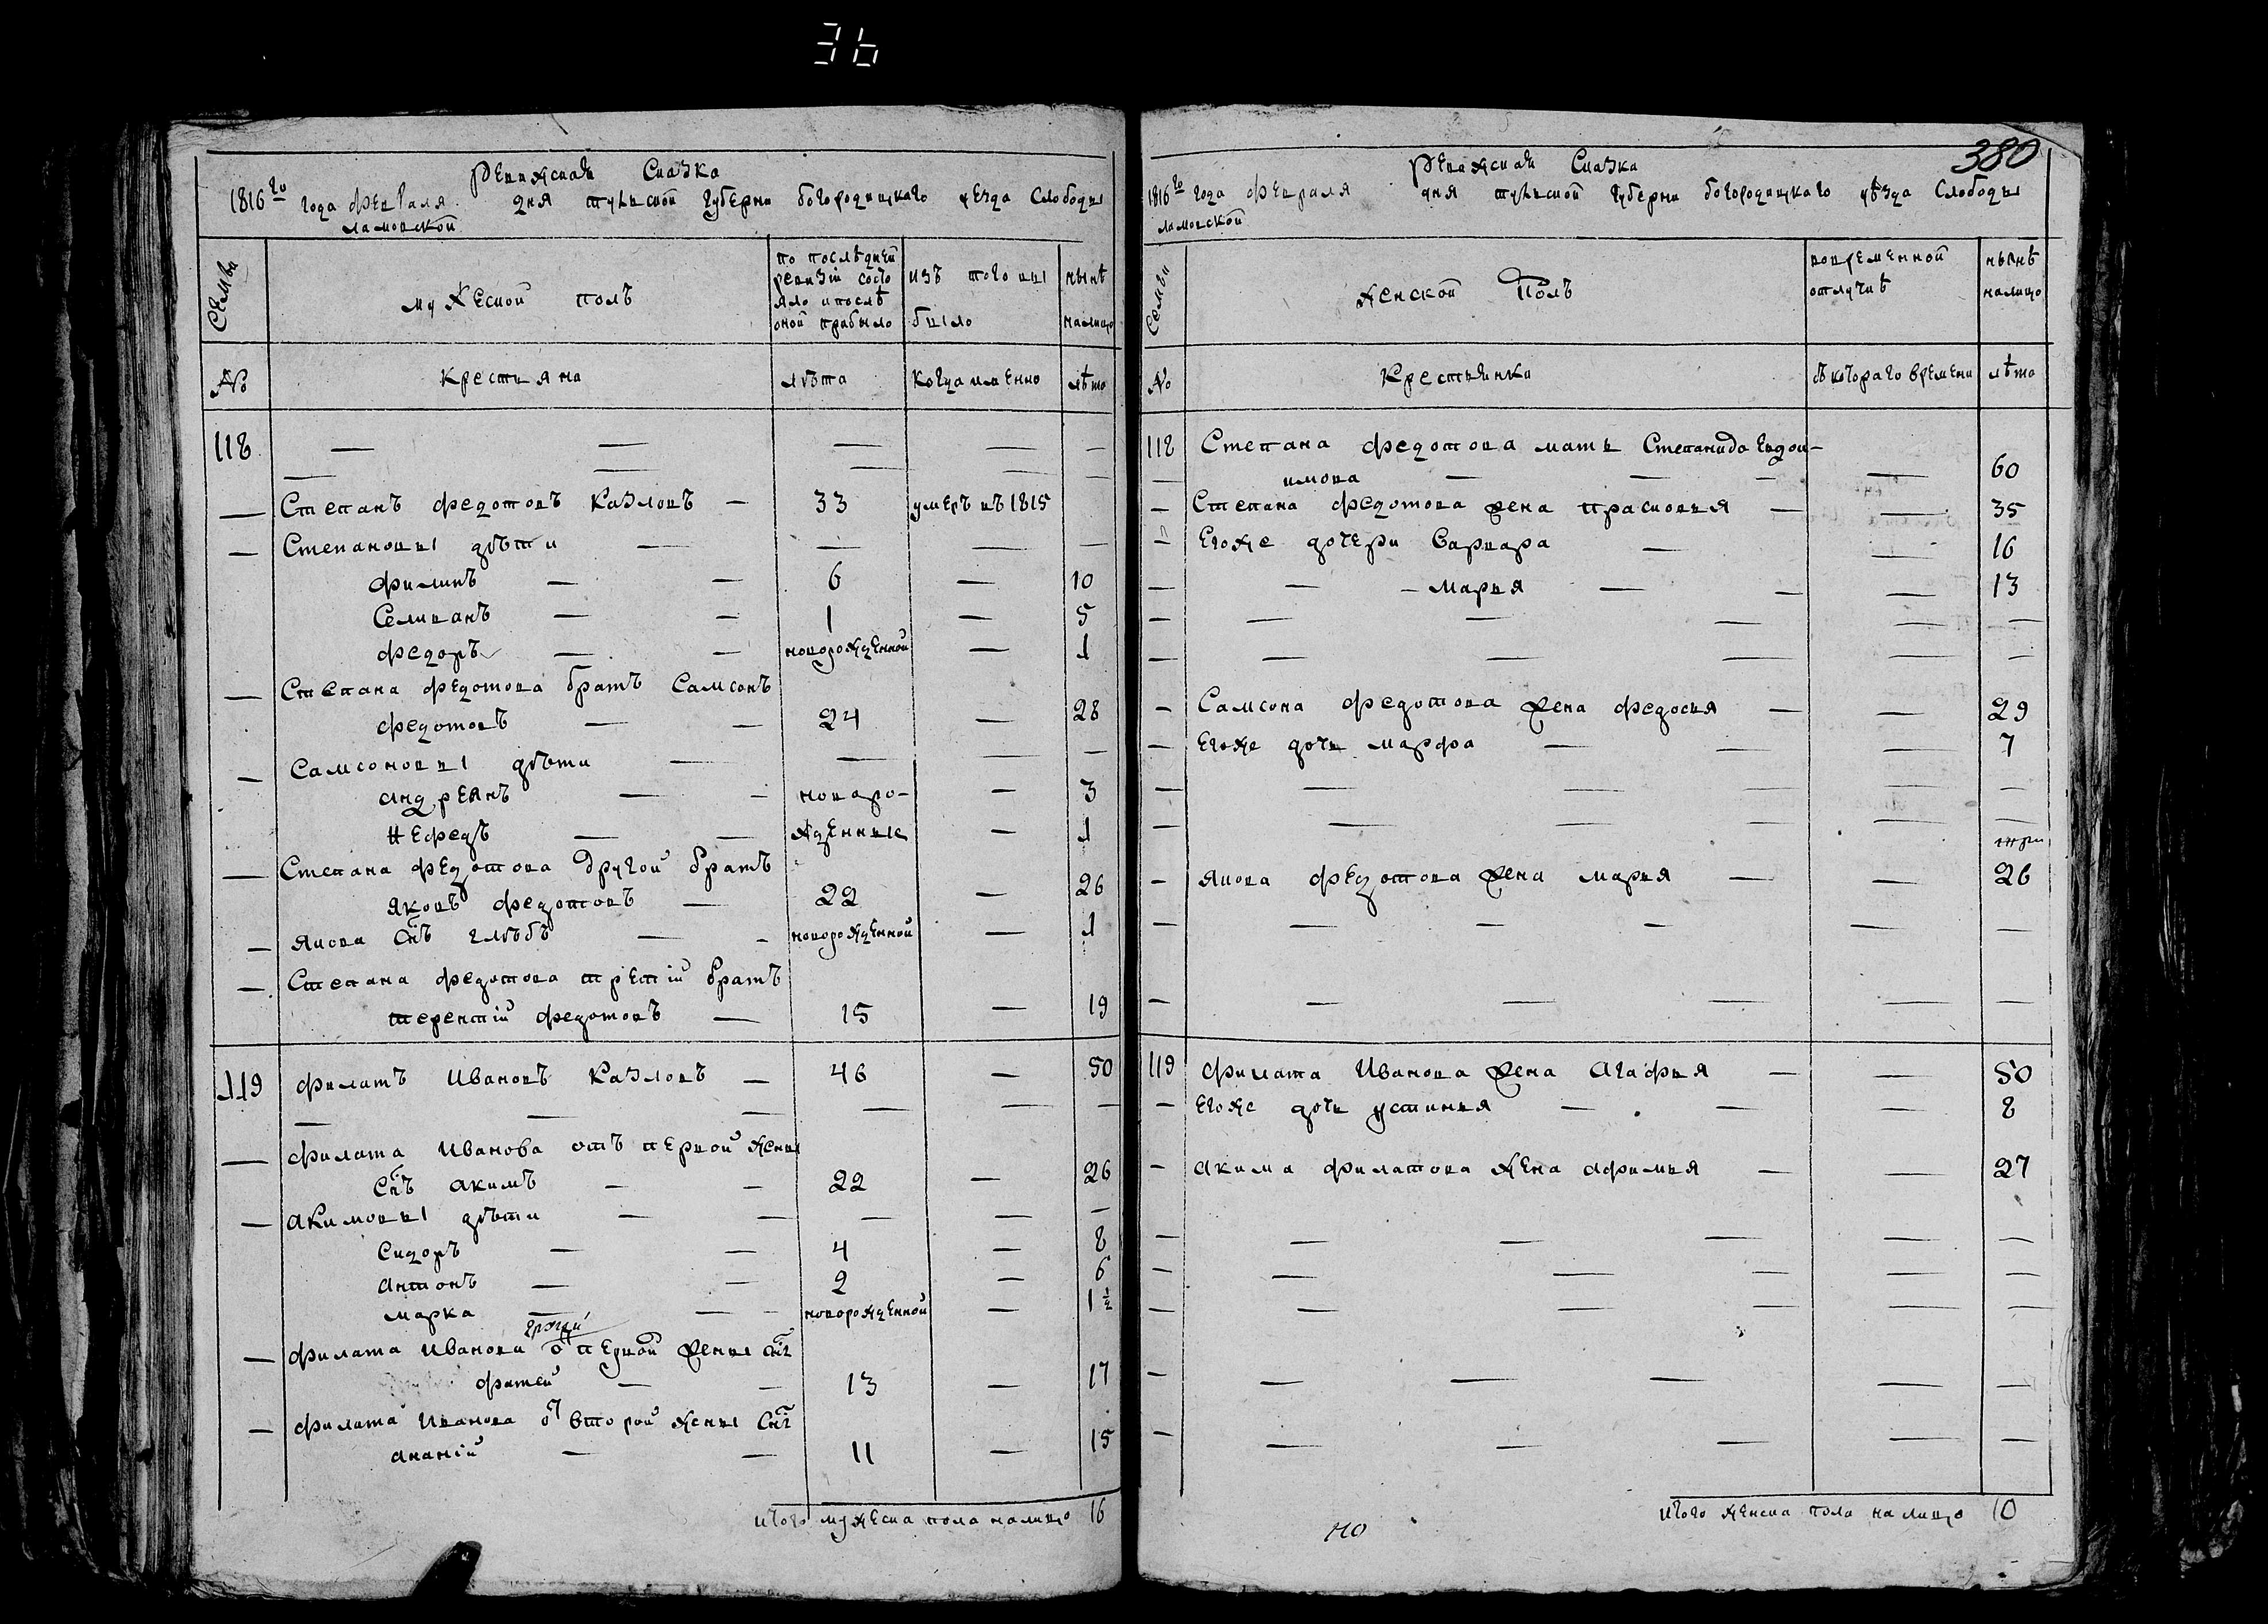 36
Ревижская Сказка
1816го года февраля дня тульской губерни богородицкаго уезда Слободы
ламовской
Семьи
мужеской полъ
по последней
ревизiи состо
яло и после
оной прибыло
изъ того вы
было
ныне
налицо
№
Крестьяна
лета
Когда имменно
лета
118
Степанъ федотовъ Казловъ — 33 умеръ въ 1815
Степановы дети
филипъ — — 6 — 10
Селиванъ — — 1 — 5
федоръ — — новорожденной — 1
Степана федотова братъ Самсонъ
федотовъ — — 24 — 28
Самсоновы дети
андреянъ — — новоро- — 3
Нефедъ — — жденные — 1
Степана федотова другой братъ
яковъ федотовъ — 22 — 26
якова снъ глебъ — — новорожденной — 1
Степана федотова третiй братъ
терентiй федотовъ — 15 — 19
119 филатъ Ивановъ Казловъ — 46 — 50
филата Иванова отъ первой жены
снъ акимъ — — 22 — 26
акимовы дети
Сидоръ — — 4 — 8
антонъ — — 2 — 6
марка — — новорожденной — 1 1/2
филата Иванова от первой жены снъ
фатей — — 13 — 17
филата Иванова от второй жены снъ
ананiй — — 11 — 15
итого мужеска пола налицо 16
380
Ревижская Сказка
1816го года февраля дня тульской губерни богородицкаго уѣзда Слободы
ламовской
Семьи
женской Полъ
вовременной
отлучиѣ
нынѣ
налицо
№
Крестьянки
съ котораго времени
лѣта
118 Степана федотова мать Степанида Евдок-
имова — — — — 60
Степана федотова жена прасковья — — 35
Егоже дочери Варвара — — 16
— марья — — — 13
Самсона федотова жена федосья — — 29
Егоже дочь марфа — — — 7
якова федотова жена марья — — 26
119 филата Иванова жена Агафья — — 50
Егоже дочь устинья — — — 8
акима филатова жена афимья — — 27
итого женска пола налицо 10